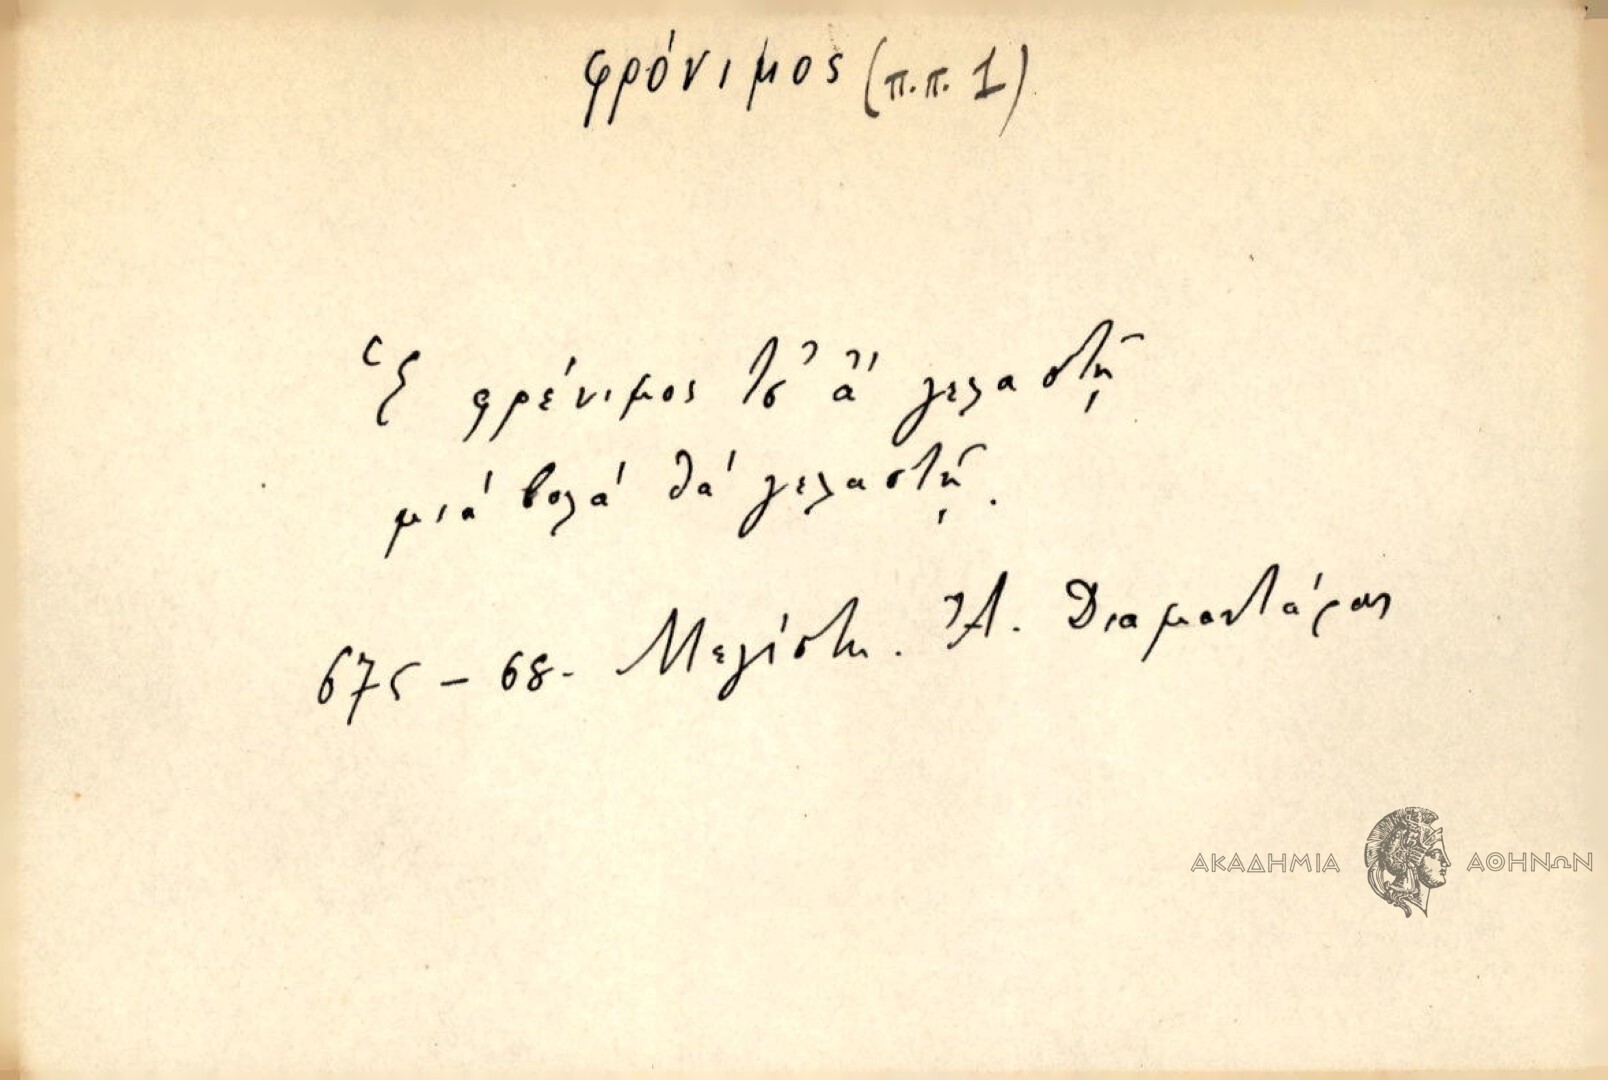 φρόνιμος (π.π. 1)
Ὁ φρένιμος τσ' ἂ γελαστῇ
μιά βολά θά γελαστῇ.
675 - 68. Μεγίστη. Ἀ. Διαμαντάρας
ΑΚΑΔΗΜΙΑ ΑΘΗΝΩΝ